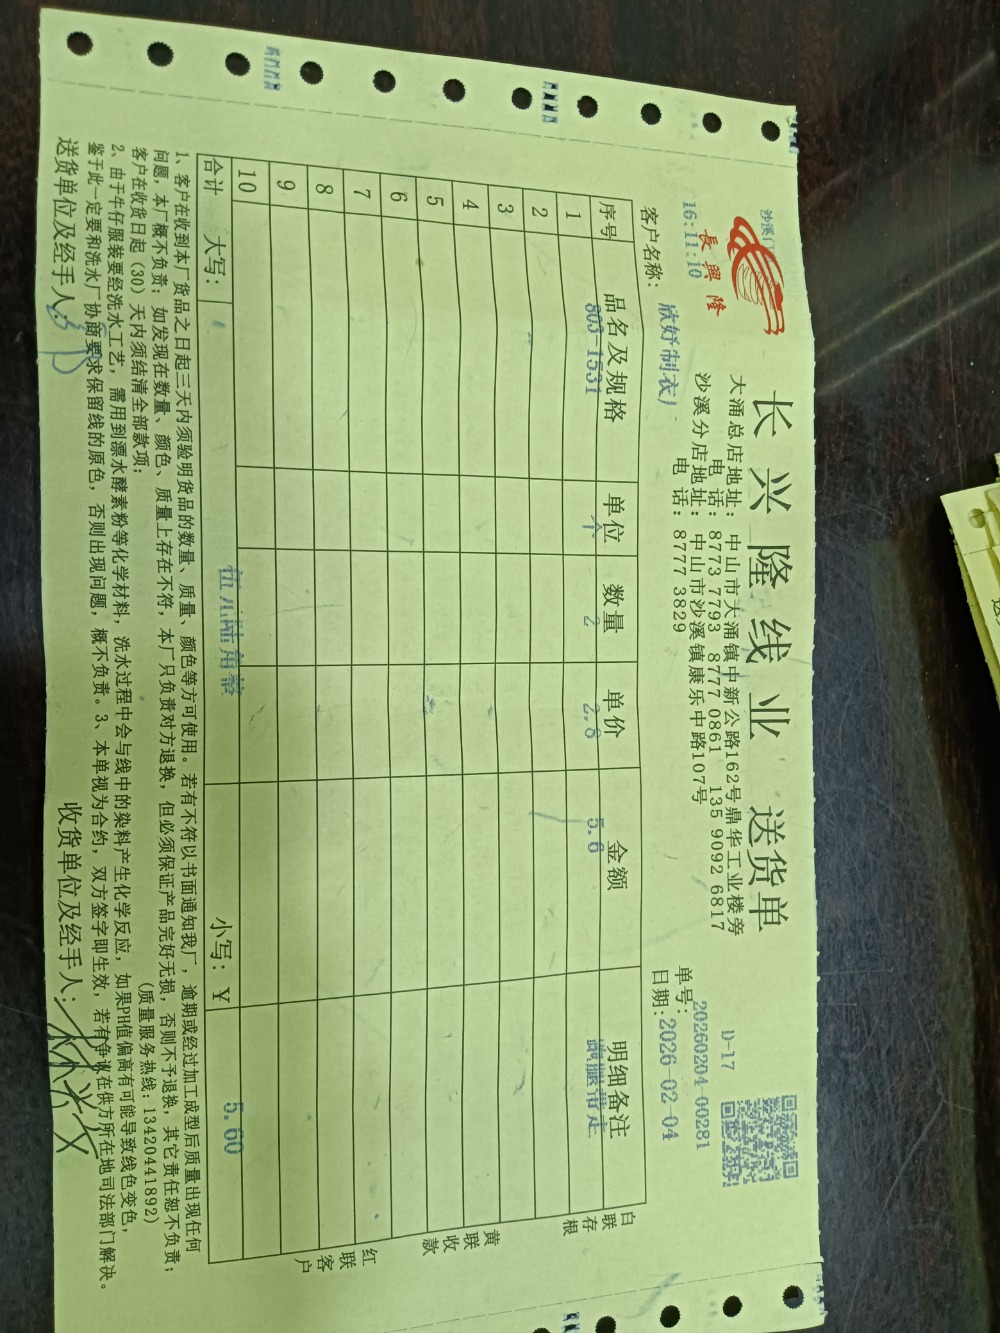 長興隆
16:11:10
长兴隆线业 送货单
D-17
大涌总店地址：中山市大涌镇中新公路162号鼎华工业楼旁
电话：8773 7793 8777 0861 135 9092 6817
沙溪分店地址：中山市沙溪镇康乐中路107号
电话：8777 3829
单号：20260204-00281
客户名称：欣妤制衣厂
日期：2026-02-04
序号 品名及规格 单位 数量 单价 金额 明细备注
1 803-1531 个 2 2.8 5.6
2
3
4
5
6
7
8
9
10
合计 大写：伍元陆角整 小写：¥ 5.60
白联存根
黄联收款
红联客户
1、客户在收到本厂货品之日起三天内须验明货品的数量、质量、颜色等方可使用。若有不符以书面通知我厂，逾期或经过加工成型后质量出现任何
问题，本厂概不负责；如发现在数量、颜色、质量上存在不符，本厂只负责对方退换，但必须保证产品完好无损，否则不予退换，其它责任恕不负责；
客户在收货日起（30）天内须结清全部款项； （质量服务热线：13420441892）
2、由于牛仔服装要经洗水工艺，需用到漂水酵素粉等化学材料，洗水过程中会与线中的染料产生化学反应，如果PH值偏高有可能导致线色变色，
鉴于此一定要和洗水厂协商要求保留线的原色，否则出现问题，概不负责。3、本单视为合约，双方签字即生效，若有争议在供方所在地司法部门解决。
送货单位及经手人： 收货单位及经手人：